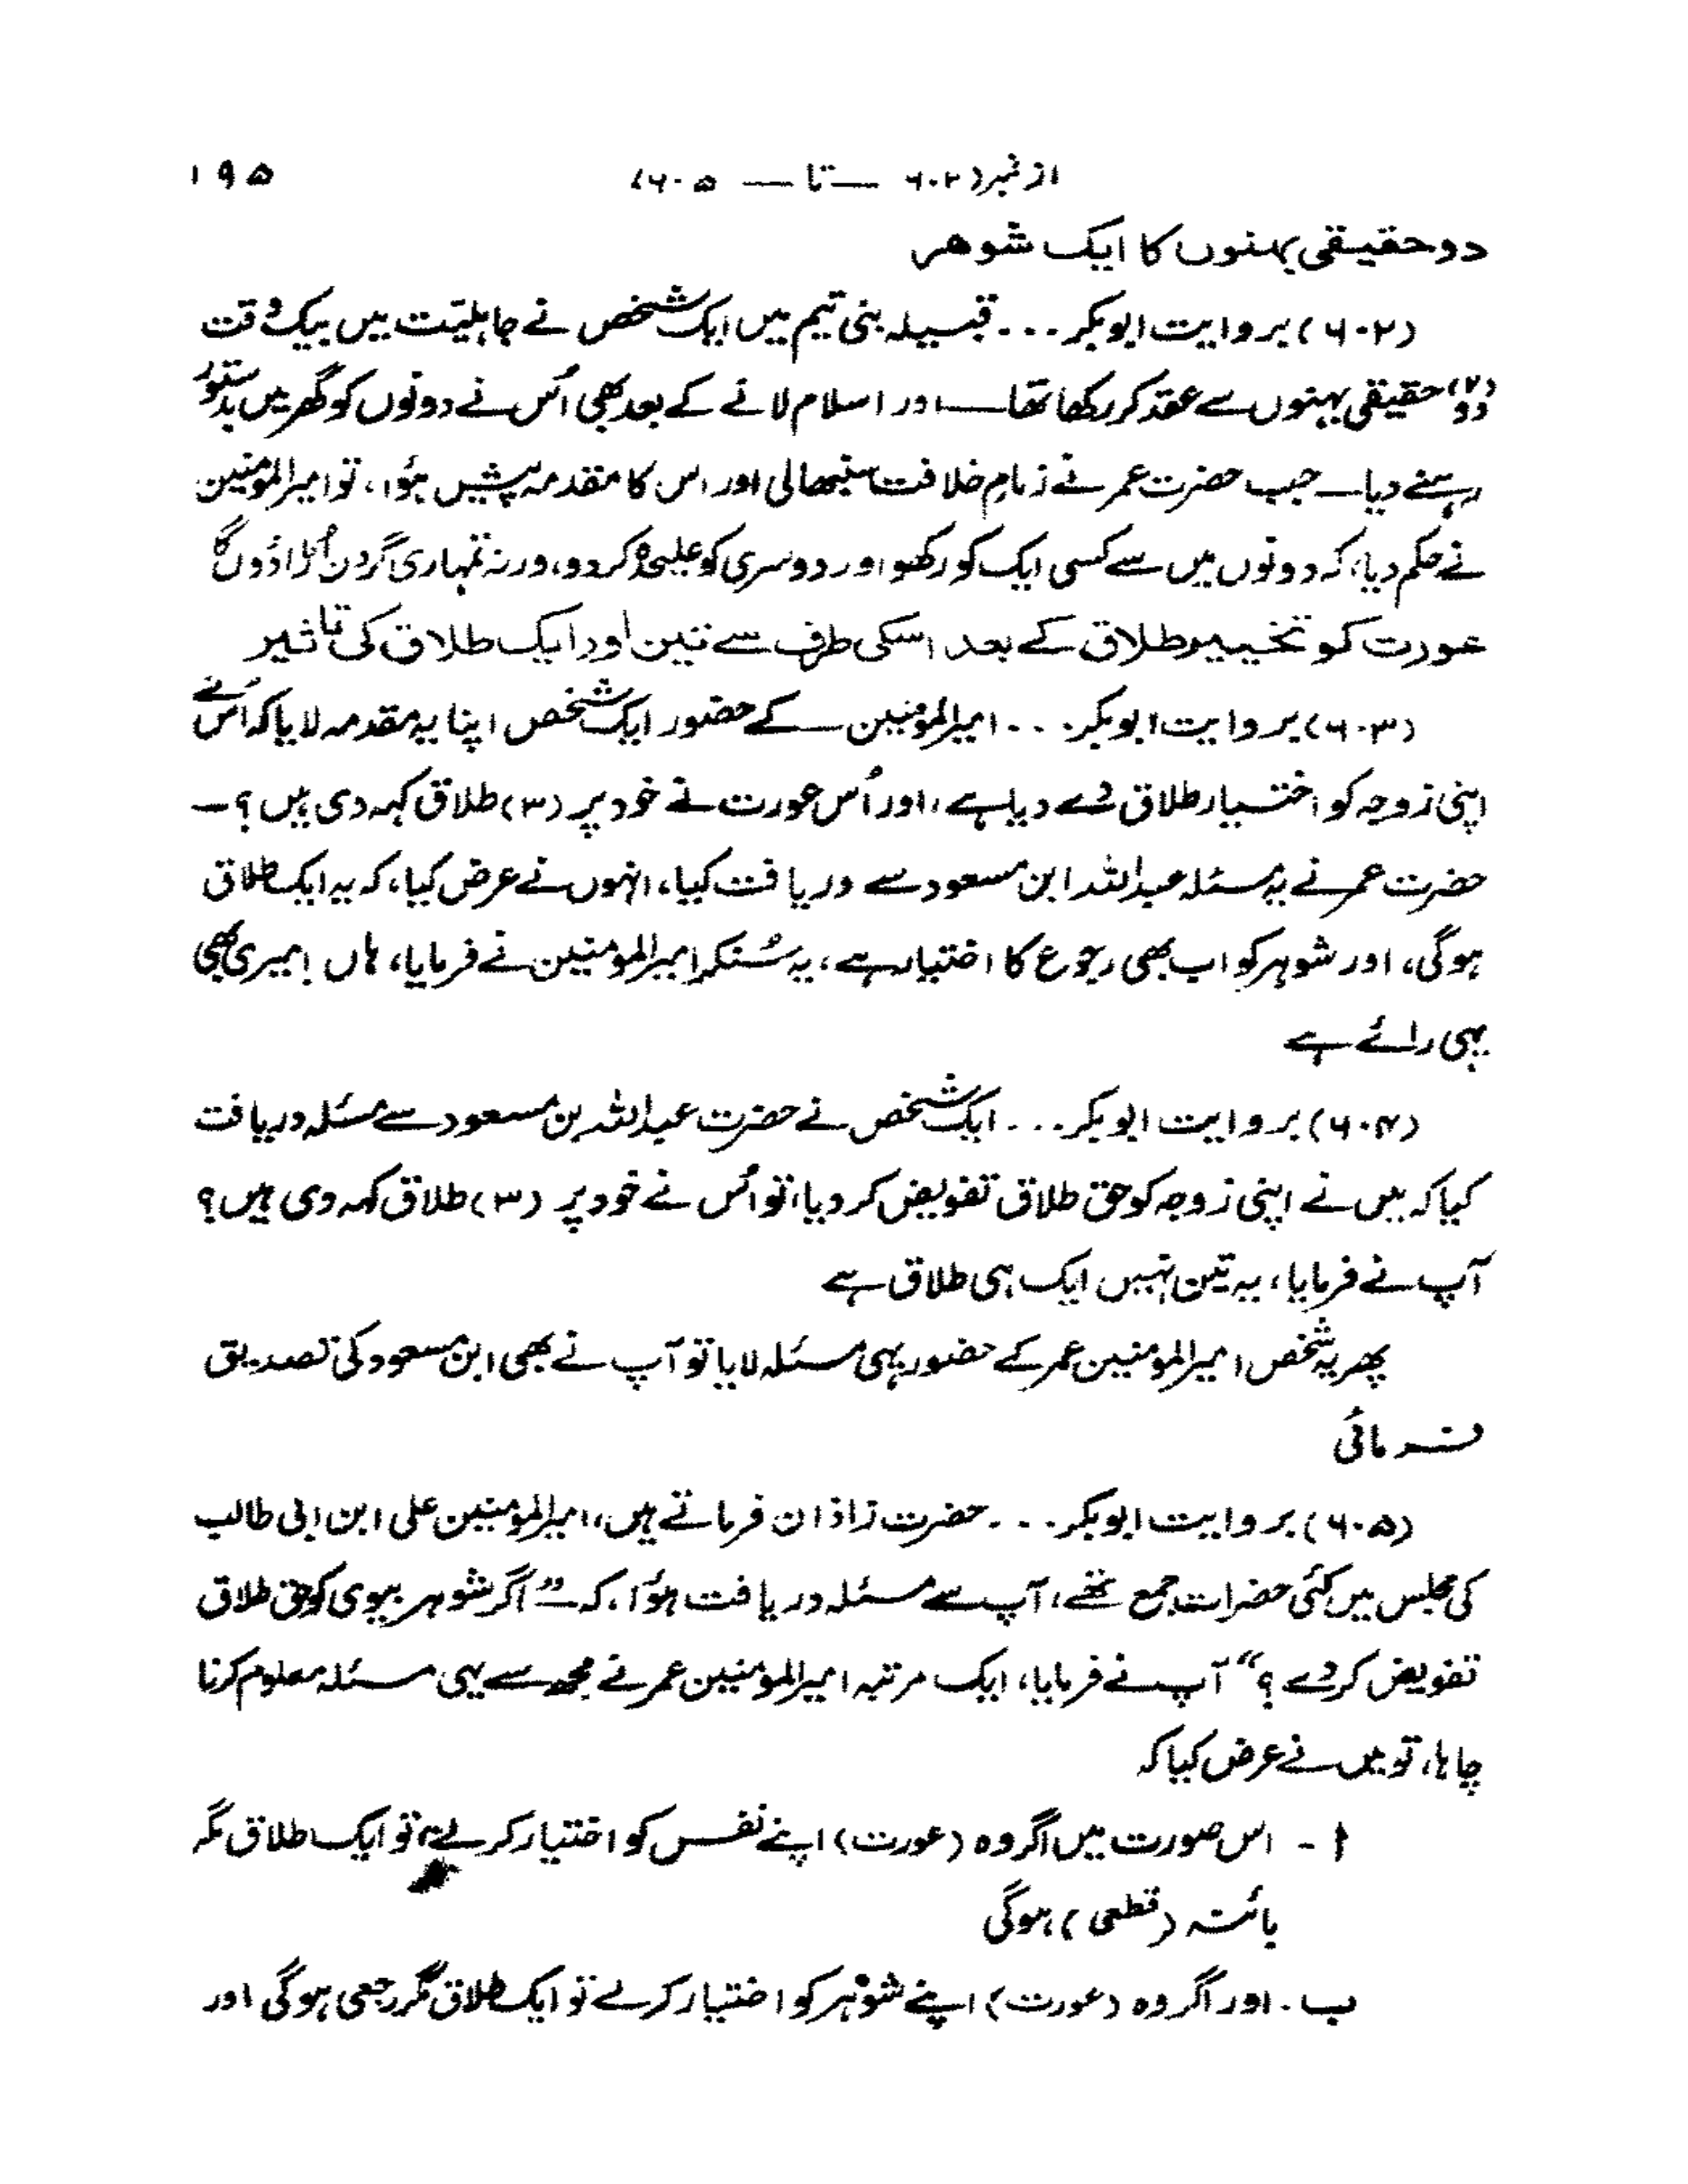 از نمبر (۶۰۲ — تا — ۶۰۵) ۱۹۵
دو حقیقی بہنوں کا ایک شوہر
(۶۰۲) بروایت ابوبکر ... قبیلہ بنی تیم میں ایک شخص نے جاہلیّت میں بیک وقت
دو (۲) حقیقی بہنوں سے عقد کر رکھا تھا — اور اسلام لانے کے بعد بھی اُس نے دونوں کو گھر میں بدستور
رہنے دیا — جب حضرت عمر نے زمامِ خلافت سنبھالی اور اس کا مقدمہ پیش ہؤا، تو امیرالمؤمنین
نے حکم دیا، کہ دونوں میں سے کسی ایک کو رکھو اور دوسری کو علیحدہ کر دو، ورنہ تمہاری گردن اُڑا دُوں گا
عورت کو تخییر طلاق کے بعد اسکی طرف سے تین اور ایک طلاق کی تاثیر
(۶۰۳) بروایت ابوبکر ... امیرالمؤمنین — کے حضور ایک شخص اپنا یہ مقدمہ لایا کہ اُس نے
اپنی زوجہ کو اختیار طلاق دے دیا ہے، اور اُس عورت نے خود پر (۳) طلاق کہہ دی ہیں؟ —
حضرت عمر نے یہ مسئلہ عبداللہ ابن مسعود سے دریافت کیا، انہوں نے عرض کیا، کہ یہ ایک طلاق
ہوگی، اور شوہر کو اب بھی رجوع کا اختیار ہے، یہ سُنکر امیرالمومنین نے فرمایا، ہاں! میری بھی
یہی رائے ہے
(۶۰۴) بروایت ابوبکر ... ایک شخص نے حضرت عبداللہ بن مسعود سے مسئلہ دریافت
کیا کہ میں نے اپنی زوجہ کو حق طلاق تفویض کر دیا، تو اُس نے خود پر (۳) طلاق کہہ دی ہیں؟
آپ نے فرمایا، یہ تین نہیں ایک ہی طلاق ہے
پھر یہ شخص امیرالمومنین عمر کے حضور یہی مسئلہ لایا تو آپ نے بھی ابن مسعود کی تصدیق
فرمائی
(۶۰۵) بروایت ابوبکر ... حضرت زاذان فرماتے ہیں، امیرالمؤمنین علی ابن ابی طالب
کی مجلس میں کئی حضرات جمع تھے، آپ سے مسئلہ دریافت ہؤا، کہ — ”اگر شوہر بیوی کو حق طلاق
تفویض کر دے؟“ آپ نے فرمایا، ایک مرتبہ امیرالمؤمنین عمر نے مجھ سے یہی مسئلہ معلوم کرنا
چاہا، تو میں نے عرض کیا کہ
ا - اس صورت میں اگر وہ (عورت) اپنے نفس کو اختیار کر لے، تو ایک طلاق مگر
بائنہ (قطعی) ہوگی
ب - اور اگر وہ (عورت) اپنے شوہر کو اختیار کر لے تو ایک طلاق مگر رجعی ہوگی اور